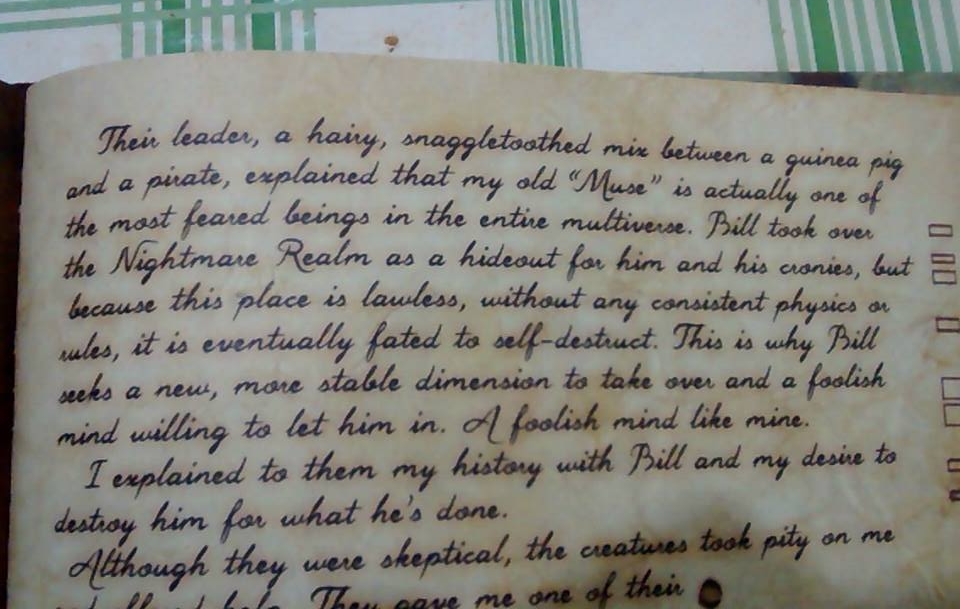 Their leader, a hairy, snaggletoothed mix between a guinea pig
and a pirate, explained that my old "Muse" is actually one of
the most feared beings in the entire multiverse. Bill took over
the Nightmare Realm as a hideout for him and his cronies, but
because this place is lawless, without any consistent physics or
rules, it is eventually fated to self-destruct. This is why Bill
seeks a new, more stable dimension to take over and a foolish
mind willing to let him in. A foolish mind like mine.
I explained to them my history with Bill and my desire to
destroy him for what he's done.
Although they were skeptical, the creatures took pity on me
and offered help. They gave me one of their